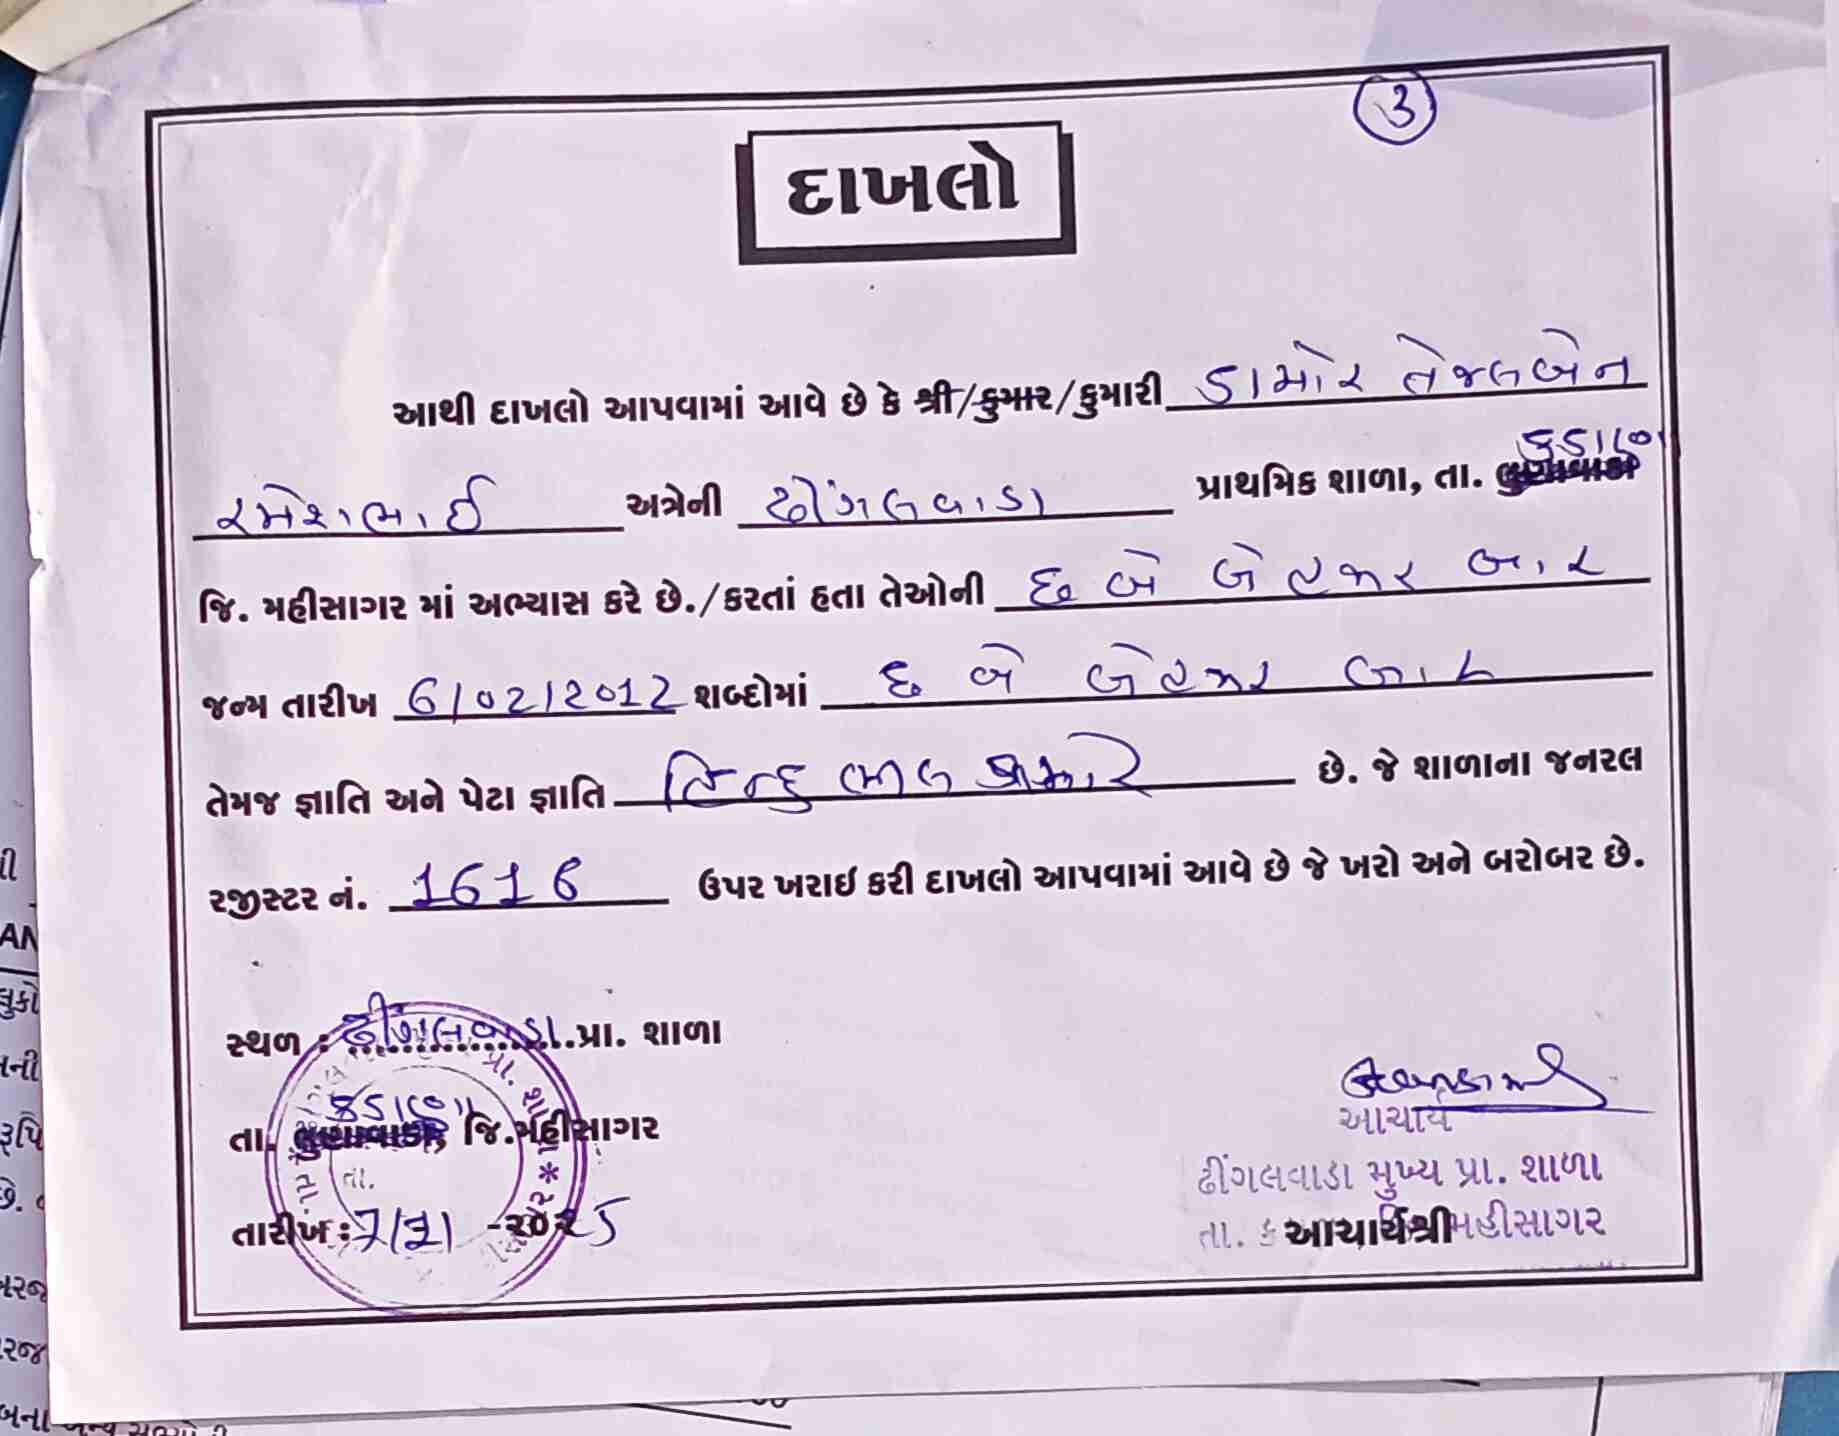 ૩
દાખલો
આથી દાખલો આપવામાં આવે છે કે શ્રી/કુમાર/કુમારી ડામોર તેજલબેન
રમેશભાઈ અત્રેની ઢીંગલવાડા પ્રાથમિક શાળા, તા. કડાણા
જિ. મહીસાગર માં અભ્યાસ કરે છે./કરતાં હતા તેઓની છ બે બેહજાર બાર
જન્મ તારીખ 6/02/2012 શબ્દોમાં છ બે બેહજાર બાર
તેમજ જ્ઞાતિ અને પેટા જ્ઞાતિ હિન્દુ ભીલ છે. જે શાળાના જનરલ
રજીસ્ટર નં. 1616 ઉપર ખરાઇ કરી દાખલો આપવામાં આવે છે જે ખરો અને બરોબર છે.
સ્થળ : ઢીંગલવાડા પ્રા. શાળા
તા. કડાણા, જિ.મહીસાગર
તારીખ : 7/ -૨૦૨5
આચાર્ય
ઢીંગલવાડા મુખ્ય પ્રા. શાળા
તા. મહીસાગર
આચાર્યશ્રી